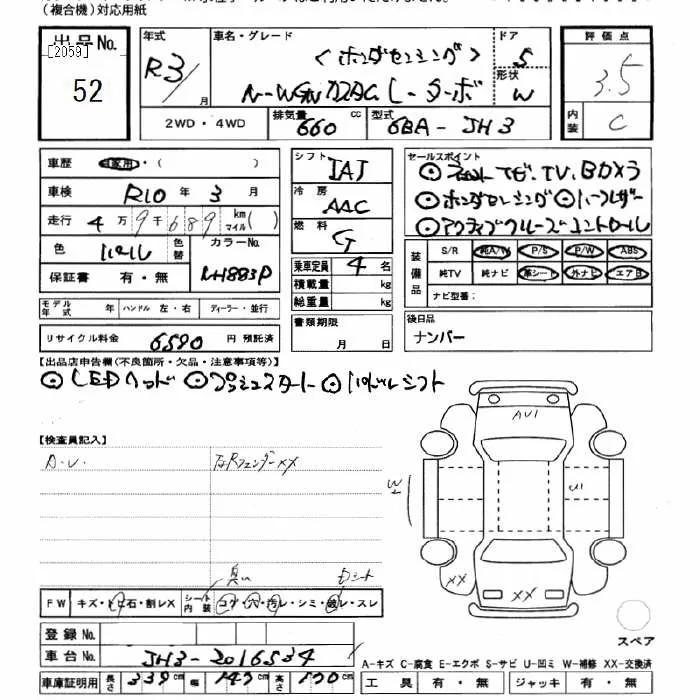 (複合機)対応用紙
出品No.
[2059]
52
年式
R3/月
車名・グレード
<ホンダセンシング>
N-WGN カスタム L・ターボ
ドア
5
形状
W
評価点
3.5
内装
C
2WD・4WD
排気量 660 cc
型式 6BA-JH3
車歴 自家用・( )
車検 R10年 3月
走行 4万9千689 km マイル( )
色 パール 色替
カラーNo. NH883P
保証書 有・無
シフト IAT
冷房 AAC
燃料 G
乗車定員 4 名
積載量 kg
総重量 kg
セールスポイント
⊙アクティブクルーズコントロール
装備品
S/R 純A/W P/S P/W ABS
純TV 純ナビ 革シート 外ナビ エアB
ナビ型番:
モデル年式 年 ハンドル 左・右 ディーラー・並行
リサイクル料金 6590 円 預託済
書類期限 月 日
後日品
ナンバー
【出品店申告欄(不良箇所・欠品・注意事項等)】
⊙LEDヘッド ⊙プッシュスタート ⊙パドルシフト
【検査員記入】
A・U・
右Rフェンダーxx
AU1
W1
U1
XX
XX
臭い
右シート
FW キズ・トビ石・割レX
シート内装 コゲ・穴・汚レ・シミ・破レ・スレ
登録No.
車台No. JH3-2016534
スペア
A-キズ C-腐食 E-エクボ S-サビ U-凹ミ W-補修 XX-交換済
車庫証明用 長さ 339cm 幅 147cm 高さ 170cm
工具 有・無 ジャッキ 有・無